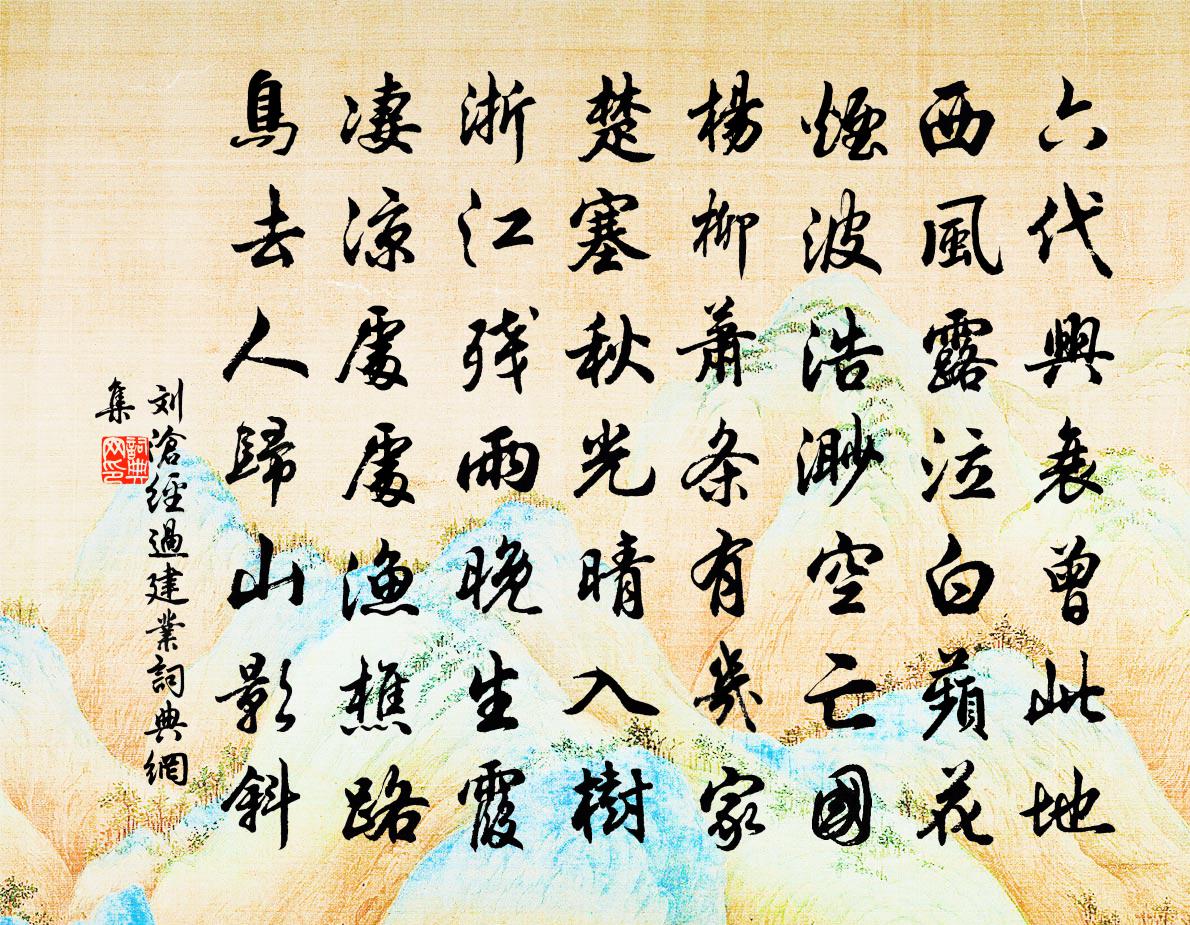 六代興衰曾此地
西風露泣白蘋花
煙波浩渺空亡國
楊柳蕭条有幾家
楚塞秋光晴入樹
浙江残雨晚生霞
淒涼處處漁樵路
鳥去人歸山影斜
刘滄經過建業詞典網
集
詞典
网印